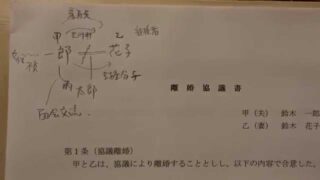 甲
乙
一郎
花子
太郎
面会交流
離婚協議書
甲（夫） 鈴木 一郎
乙（妻） 鈴木 花子
第1条（協議離婚）
甲と乙は、協議により離婚することとし、以下の内容で合意した。